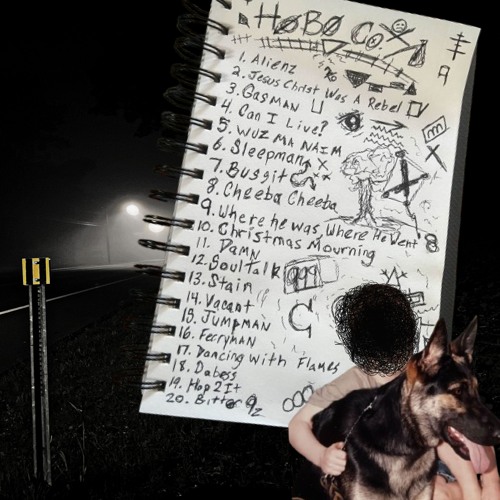 HØBØ CO.
1. Alienz
2. Jesus Christ Was A Rebel
3. GasMAN
4. Can I Live?
5. WUZ MA NAIM
6. Sleepman
7. Bussit
8. Cheeba Cheeba
9. Where he was, Where He Went
10. Christmas Mourning
11. DAMN
12. Soul Talk
13. Stain
14. Vacant
15. JUMPMAN
16. Ferryman
17. Dancing With Flames
18. Dabess
19. Hop 2 It
20. Bitter